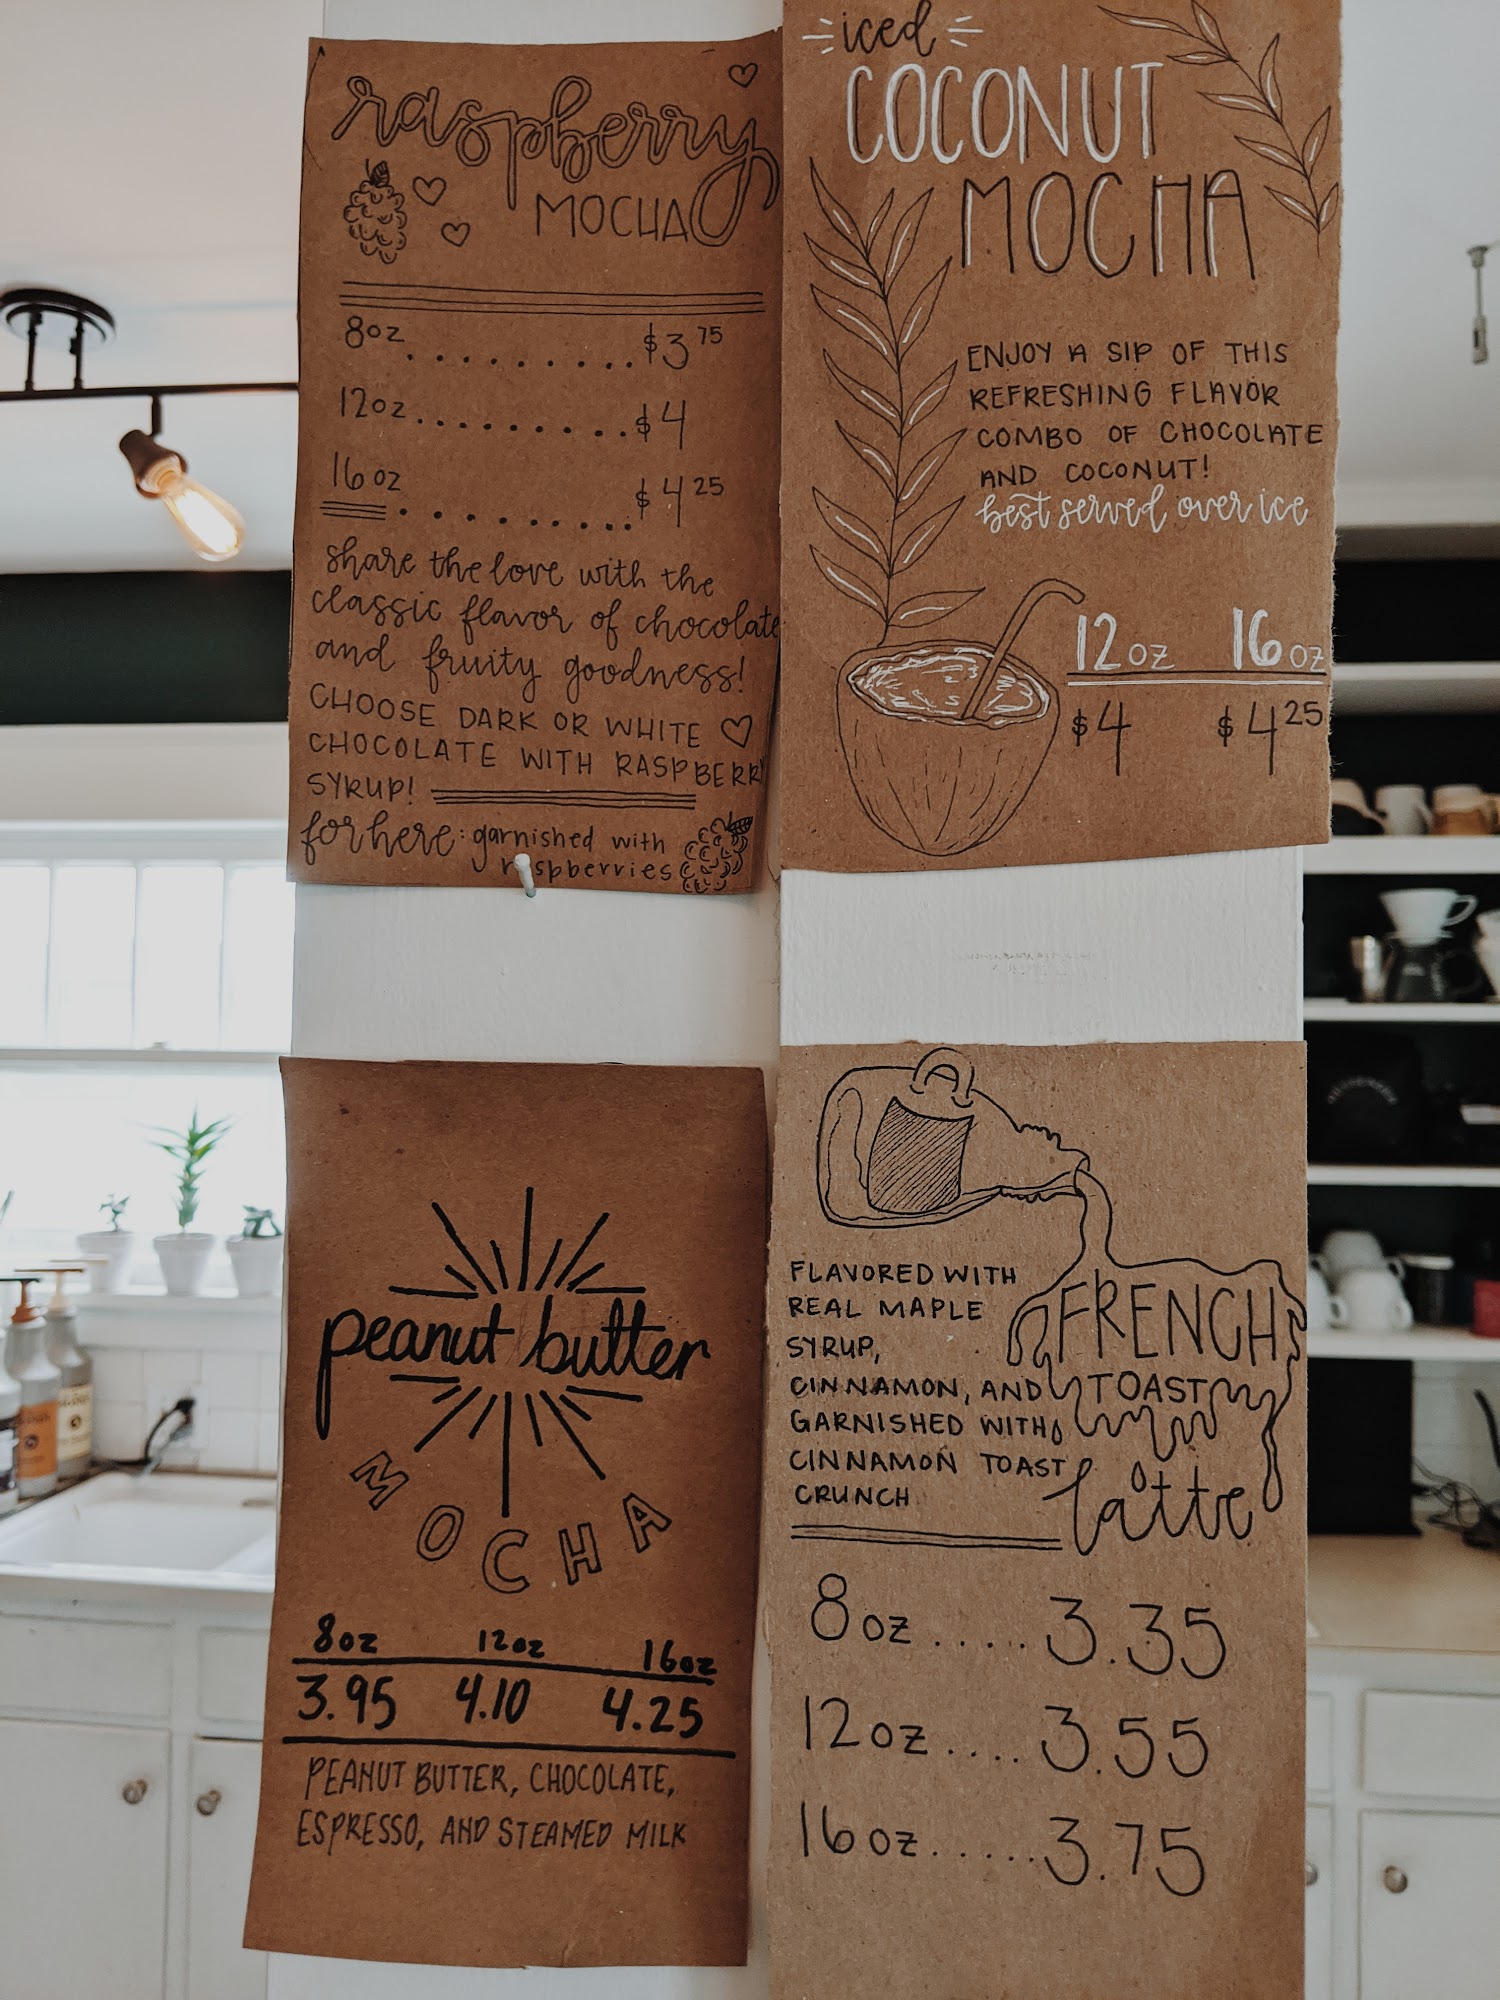 raspberry
MOCHA
8oz.........$3 75
12oz..........$4
16oz..........$4 25
share the love with the
classic flavor of chocolate
and fruity goodness!
CHOOSE DARK OR WHITE
CHOCOLATE WITH RASPBERRY
SYRUP!
for here: garnished with
raspberries
iced
COCONUT
MOCHA
ENJOY A SIP OF THIS
REFRESHING FLAVOR
COMBO OF CHOCOLATE
AND COCONUT!
best served over ice
12oz 16oz
$4 $4 25
peanut butter
MOCHA
8oz 12oz 16oz
3.95 4.10 4.25
PEANUT BUTTER, CHOCOLATE,
ESPRESSO, AND STEAMED MILK
FRENCH
TOAST
latte
FLAVORED WITH
REAL MAPLE
SYRUP,
CINNAMON, AND
GARNISHED WITH
CINNAMON TOAST
CRUNCH
8oz.....3.35
12oz....3.55
16oz.....3.75